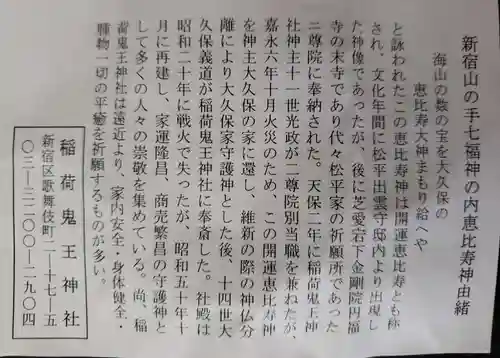 新宿山の手七福神の内恵比寿神由緒
海山の数の宝を大久保の
恵比寿大神まもり給へや
と詠われたこの恵比寿神は開運恵比寿とも称
され、文化年間に松平出雲守邸内より出現し
た神像であったが、後に芝愛宕下金剛院円福
寺の末寺であり代々松平家の祈願所であった
二尊院に奉納された。天保二年に稲荷鬼王神
社神主十一世光政が二尊院別当職を兼ねたが、
嘉永六年十月火災のため、この開運恵比寿神
を神主大久保の家に還し、維新の際の神仏分
離により大久保家守護神とした後、十四世大
久保義道が稲荷鬼王神社に奉斎した。社殿は
昭和二十年に戦火で失ったが、昭和五十年十
月に再建し、家運隆昌、商売繁昌の守護神と
して多くの人々の崇敬を集めている。尚、稲
荷鬼王神社は遠近より、家内安全・身体健全・
腫物一切の平癒を祈願するものが多い。
稲荷鬼王神社
新宿区歌舞伎町二ー十七ー五
〇三ー三二〇〇ー二九〇四